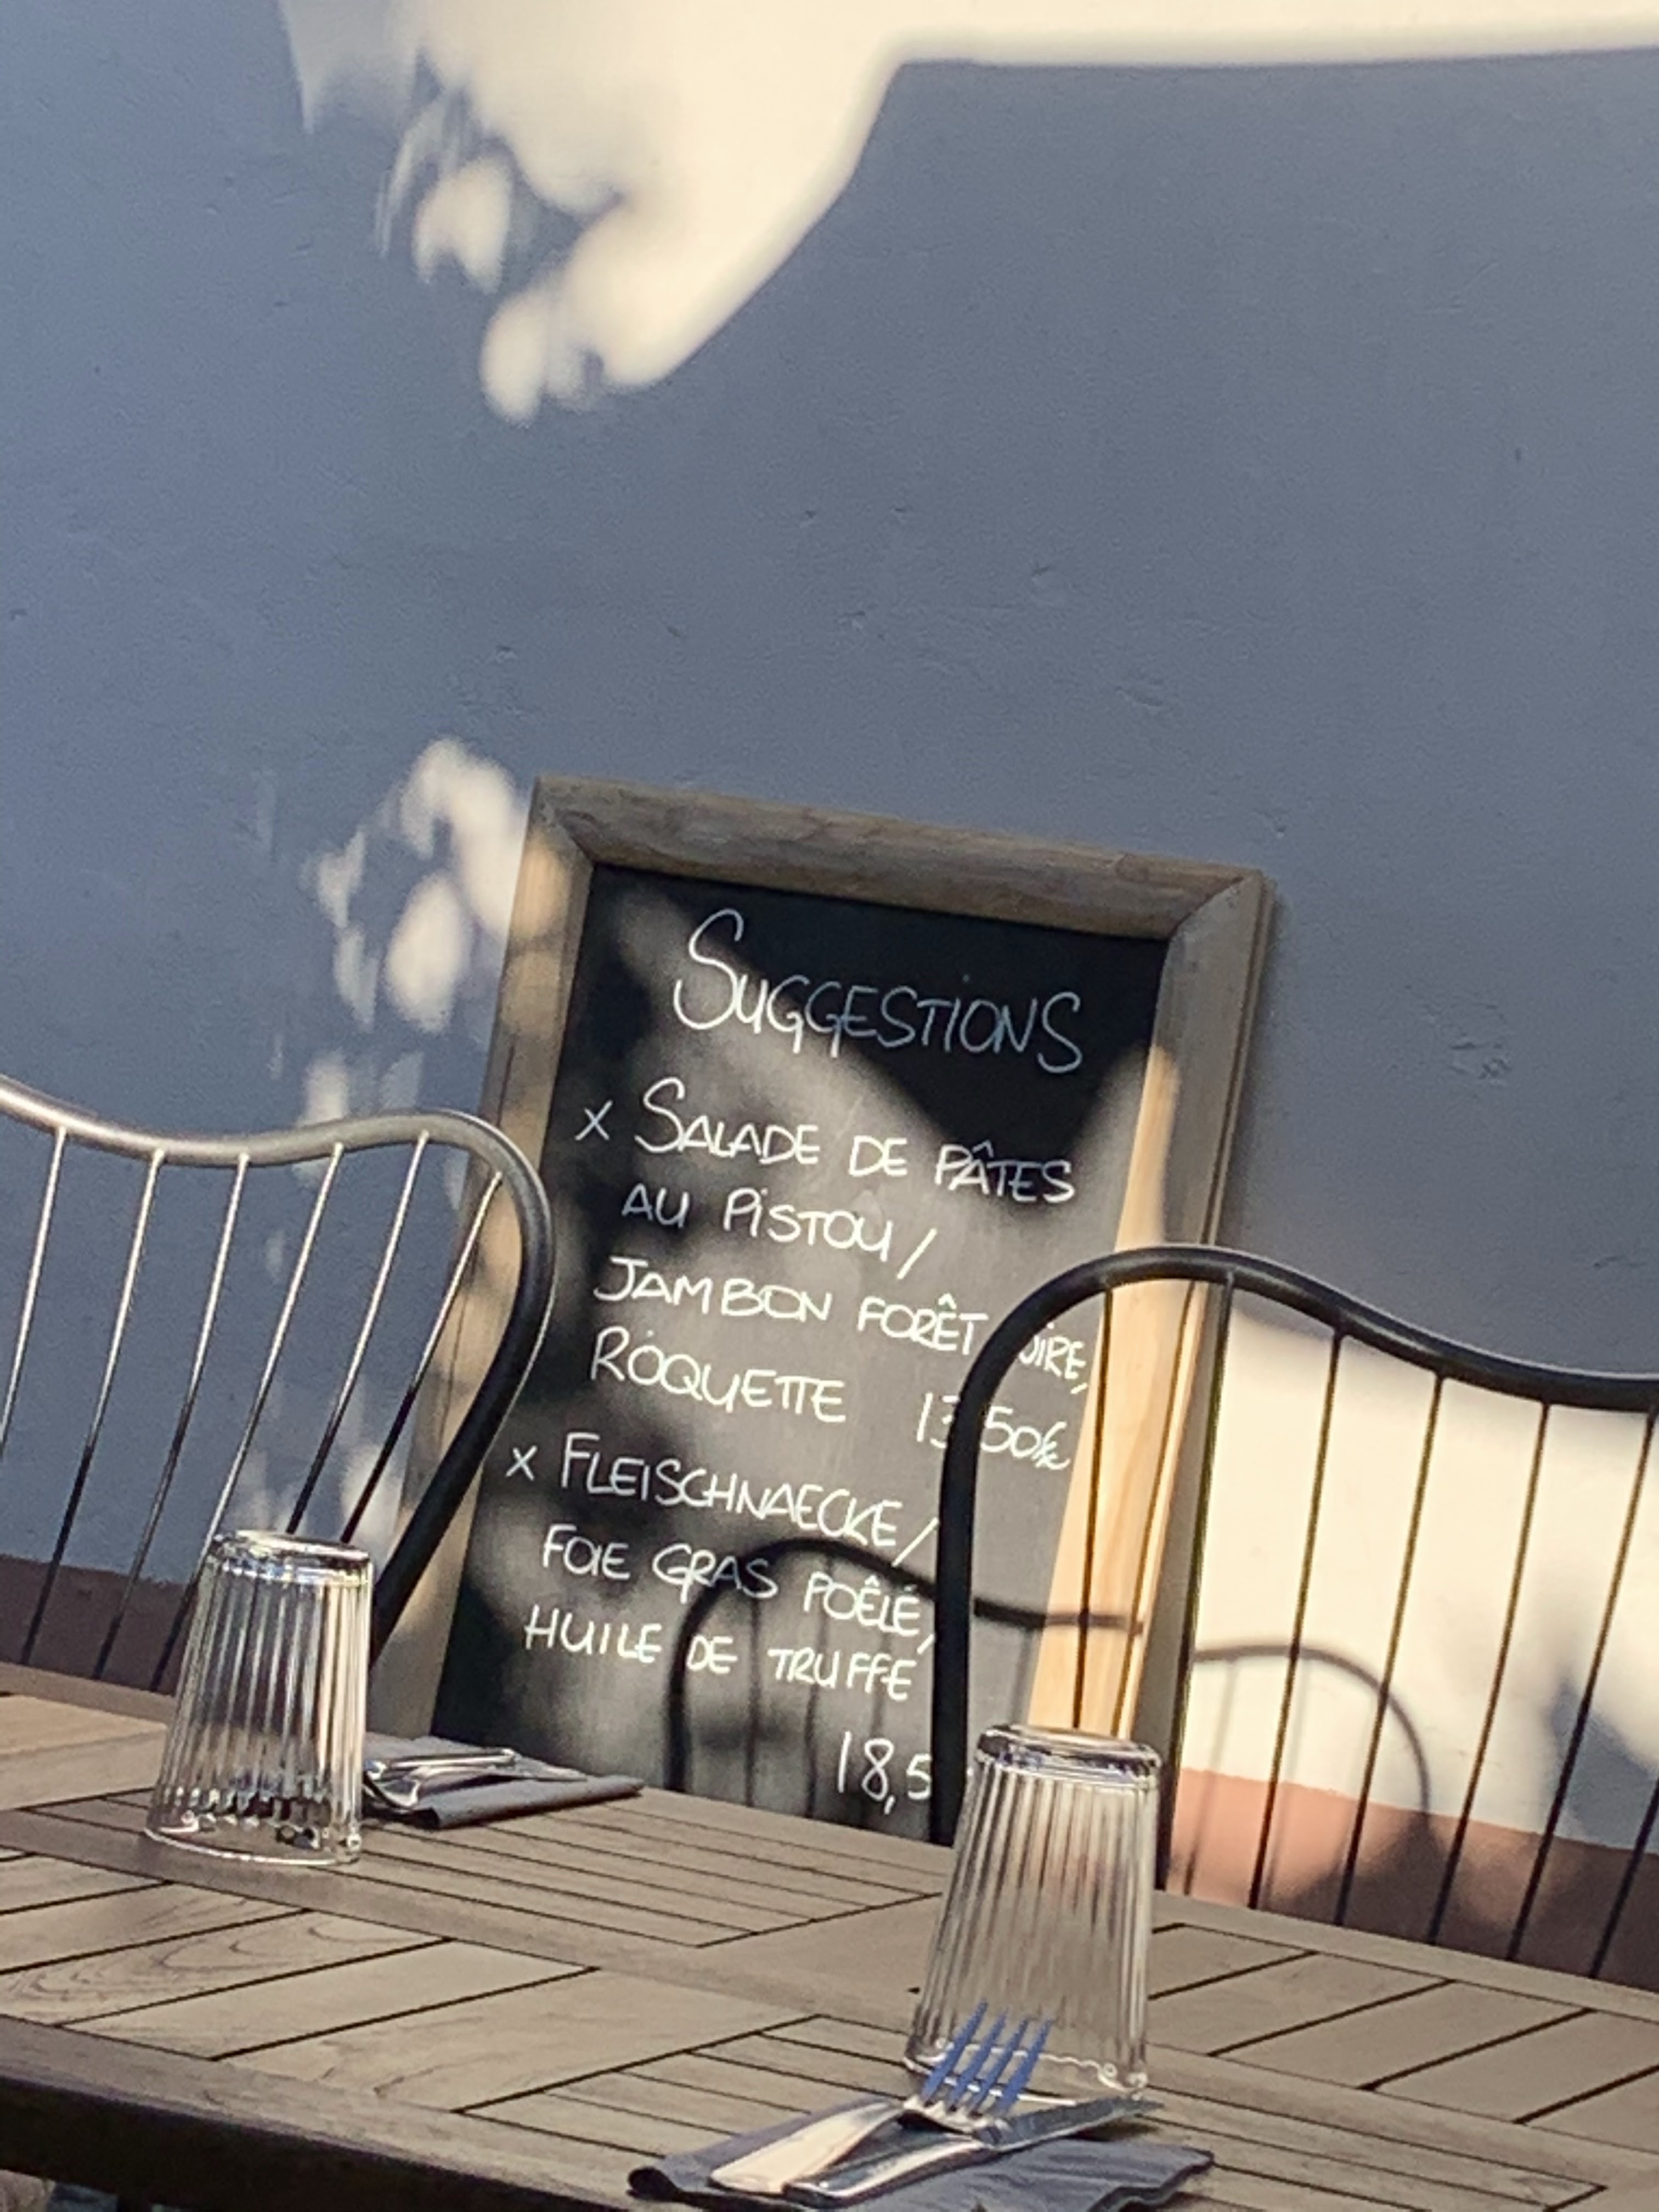 SUGGESTIONS
x SALADE DE PÂTES
AU PISTOU /
JAMBON FORÊT
ROQUETTE
x FLEISCHNAECKE /
FOIE GRAS POÊLÉ,
HUILE DE TRUFFE
18,5